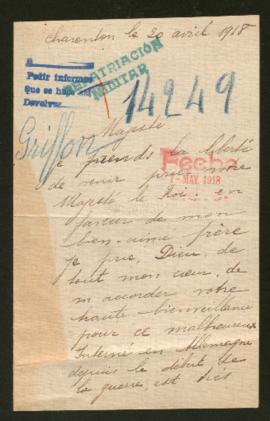 Charenton le 20 avril 1918
REPATRIACIÓN
MILITAR
Pedir informes
Que se ha
Devolver
14249
Griffon
Majesté
Je prends la liberté
Fecha
1 - MAY. 1918
de venir près votre
Majesté le Roi en
faveur de mon
bien-aimé frère
je prie Dieu de
tout mon coeur de
m accorder votre
haute bienveillance
pour ce malheureux
Interné en Allemagne
depuis le début de
la guerre, est très